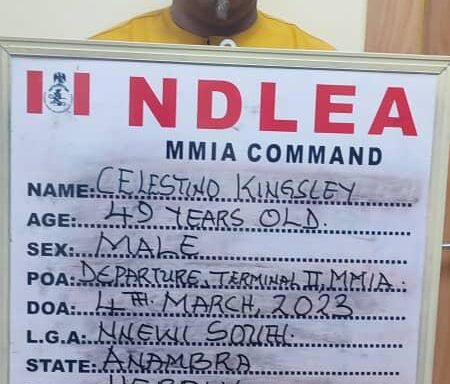 NDLEA
MMIA COMMAND
NAME: CELESTINO KINGSLEY
AGE: 49 YEARS OLD.
SEX: MALE
POA: DEPARTURE, TERMINAL II, MMIA.
DOA: 4TH MARCH, 2023
L.G.A: NNEWI SOUTH.
STATE: ANAMBRA